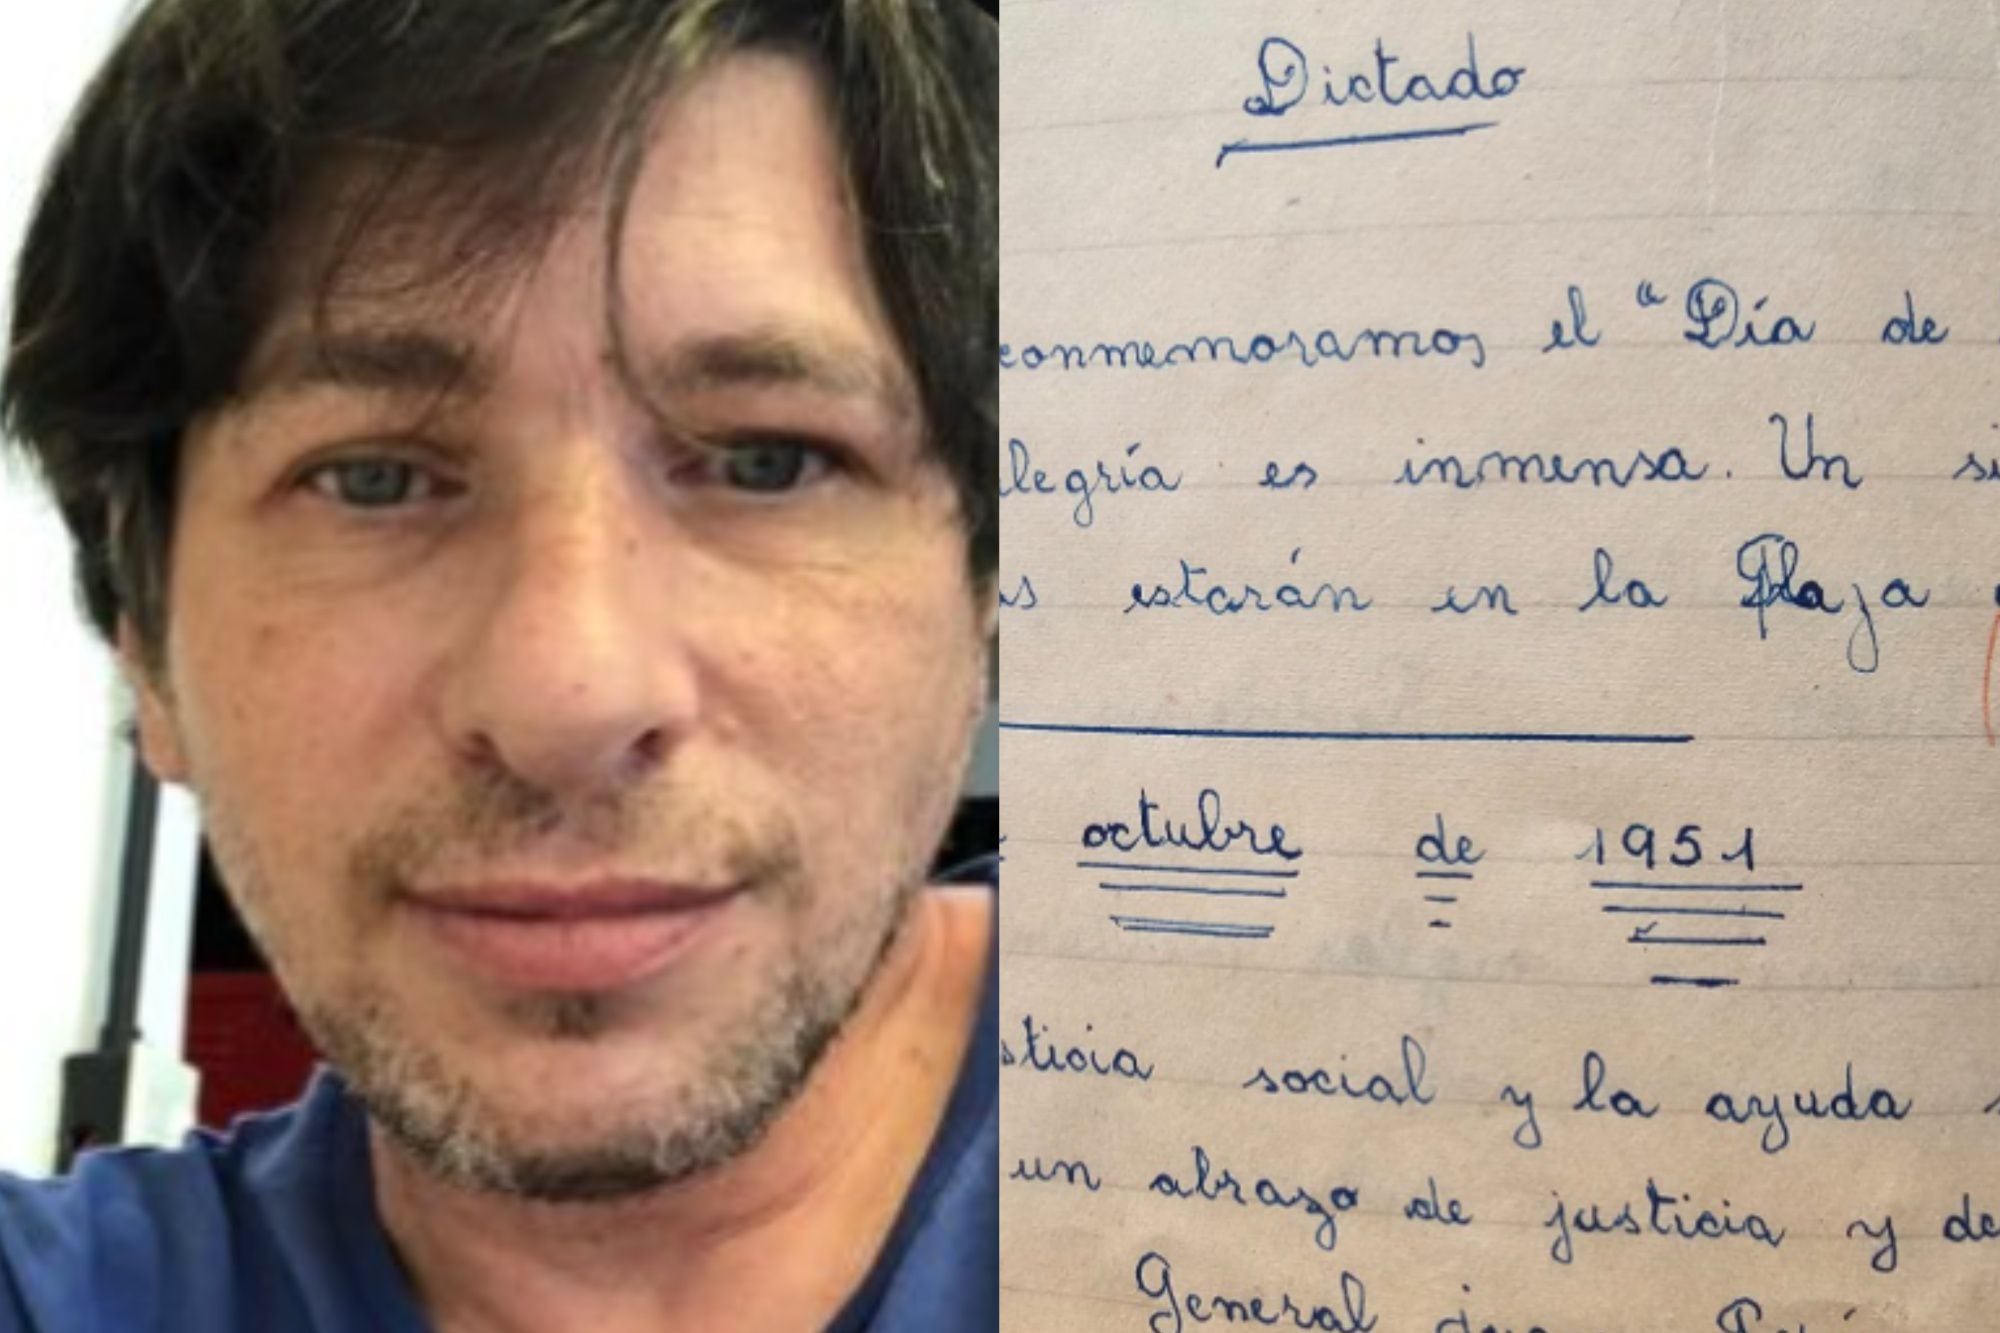 Dictado
conmemoramos el "Día de
alegría es inmensa. Un
estarán en la Plaza
octubre de 1951
social y la ayuda
un abrazo de justicia y de
General